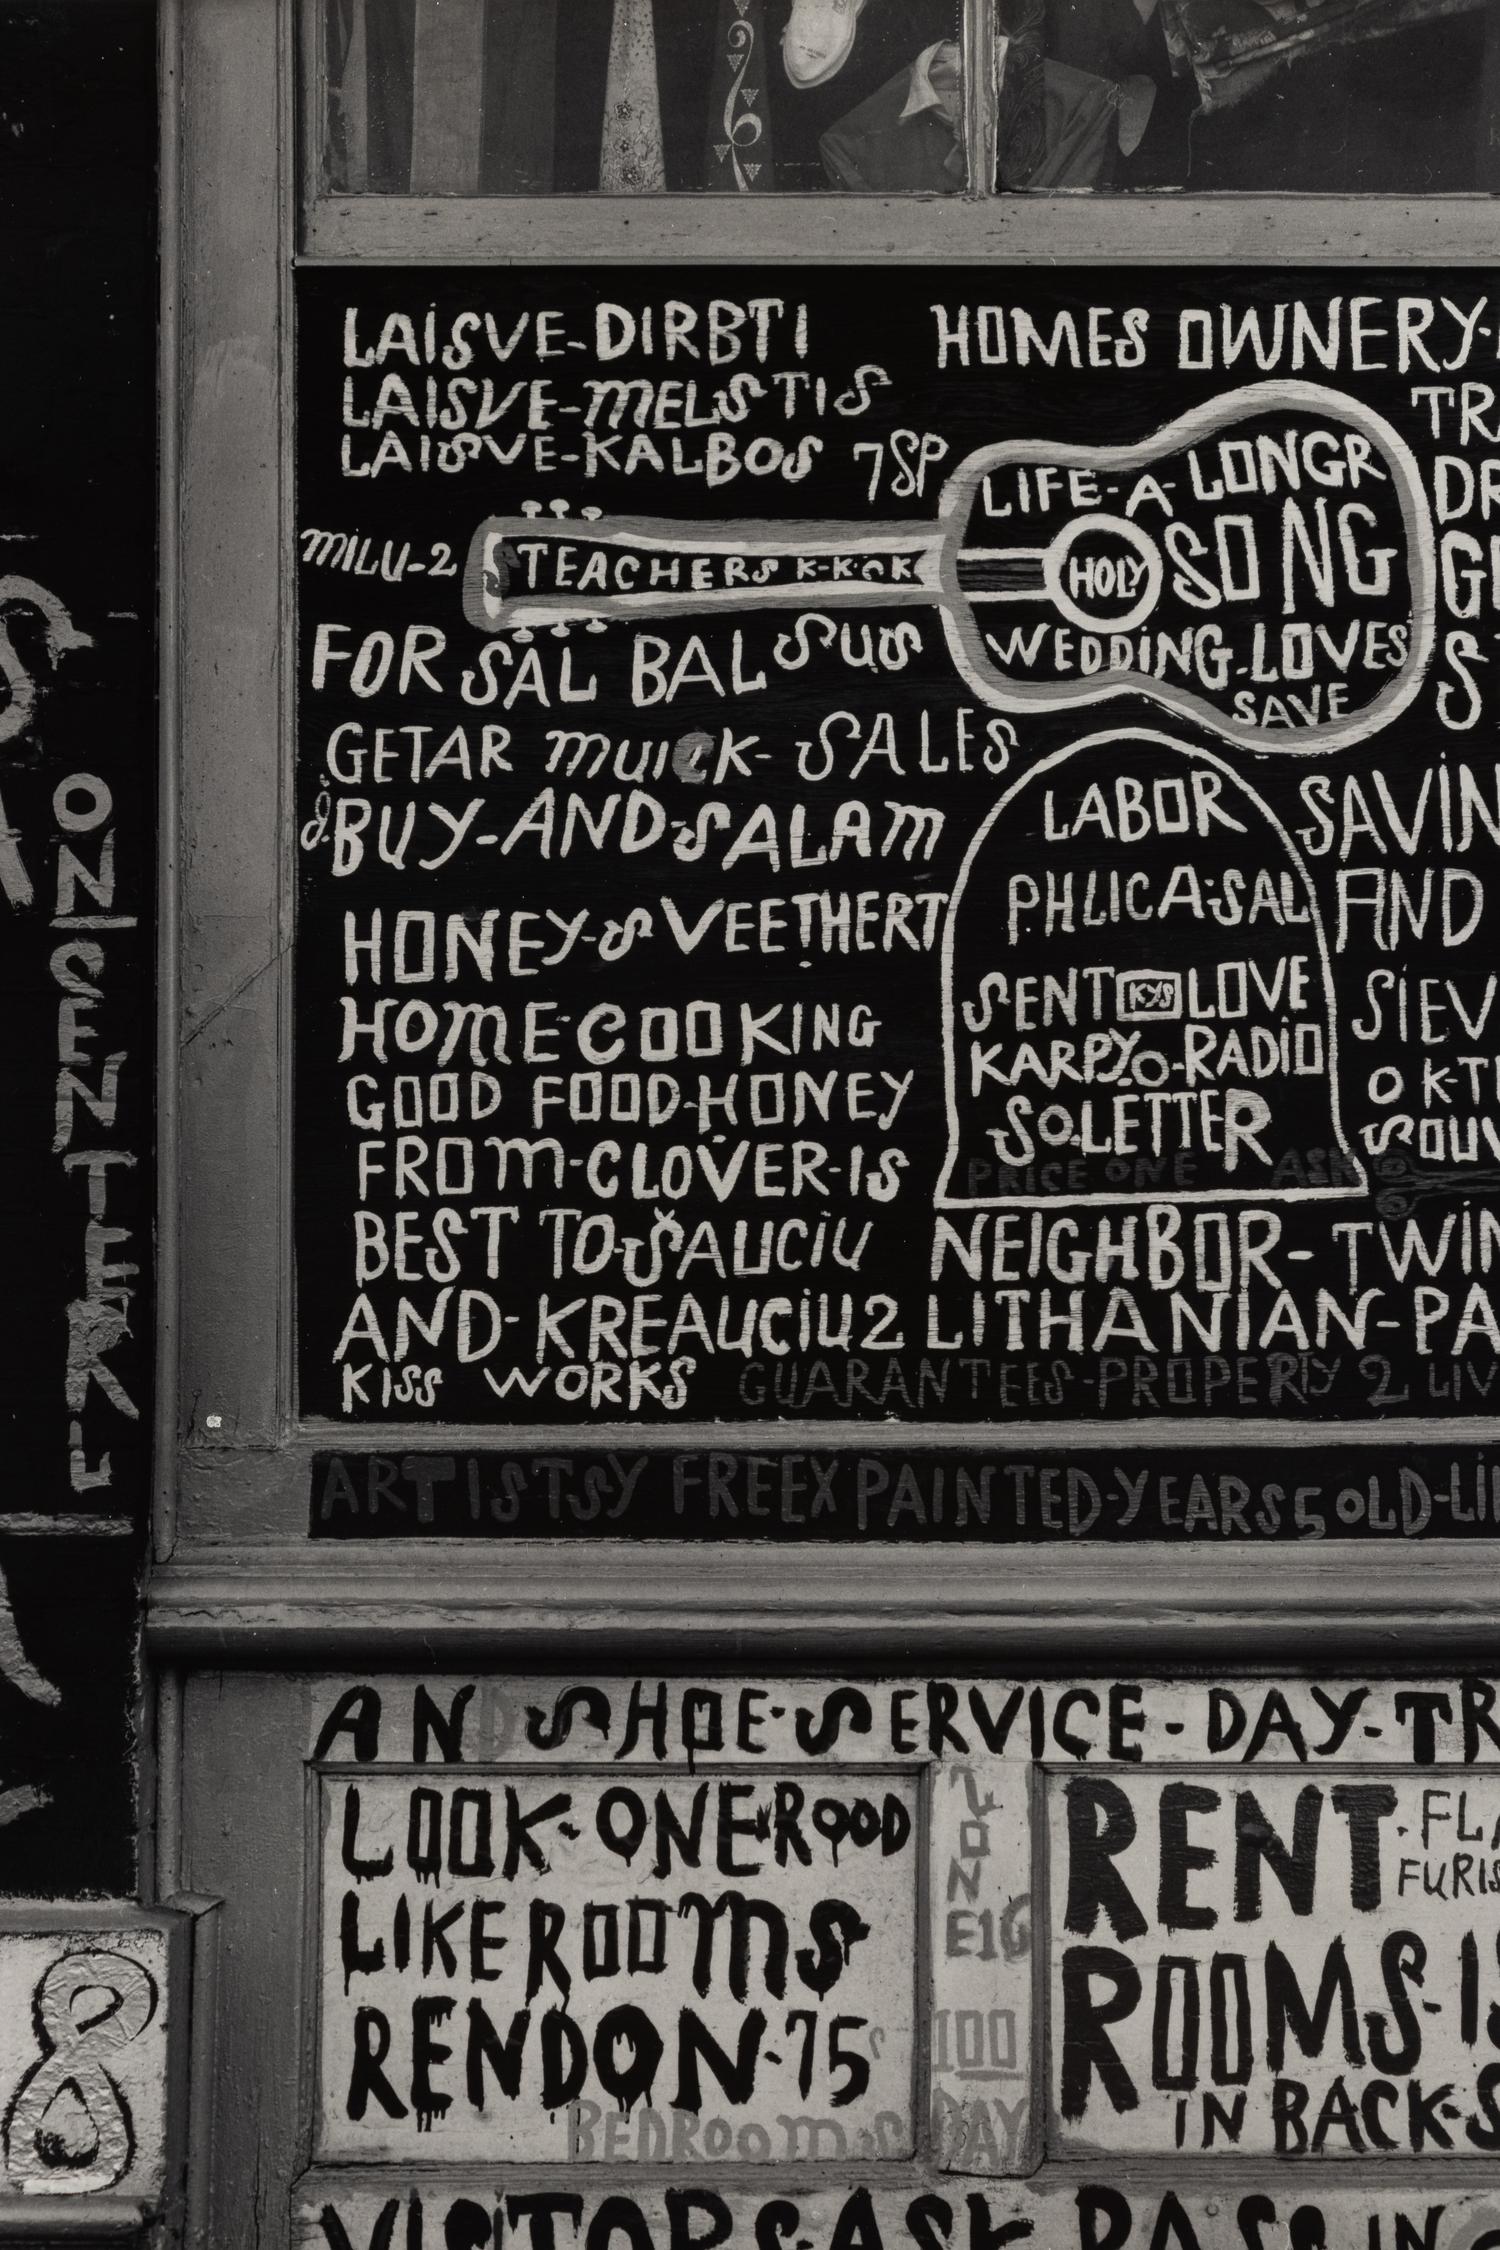 LAISVE-DIRBTI
LAISVE-MELSTIS
LAISVE-KALBOS 7SP
MILU-2
STEACHERS K-K
FOR SAL BAL SUS
GETAR MUICK- SALES
BUY-AND-SALAM
HONEY-SVEETHERT
HOME-COOKING
GOOD FOOD-HONEY
FROM-CLOVER-IS
BEST TO-ŠAUCIU
AND-KREAUCIU2
KISS WORKS
HOMES OWNERY-
TR
LIFE-A-LONGR
SONG
HOLY
WEDDING-LOVES
SAVE
DR
LABOR
PHLICA-SAL
SENT KYS LOVE
KARPY.O-RADIO
SO.LETTER
PRICE ONE ASK
SAVIN
AND
SIEV
OK-T
SOUV
NEIGHBOR-TWIN
LITHANIAN-PA
GUARANTEES-PROPERTY 2 LIV
ARTISTSY FREEX PAINTED-YEARS 5 OLD-LI
O
N
S
E
N
T
E
K
U
AND SHOE-SERVICE-DAY-TR
LOOK-ONE ROOD
LIKE ROOMS
RENDON-75
BEDROOMS
100
DAY
RENT.FLA
FURIS
ROOMS-IS
IN BACK-S
8